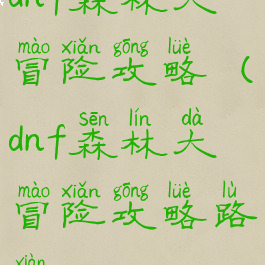 dnf森林大
mào xiǎn gōng lüè
冒险攻略（
sēn lín dà
dnf森林大
mào xiǎn gōng lüè lù
冒险攻略路
xiàn